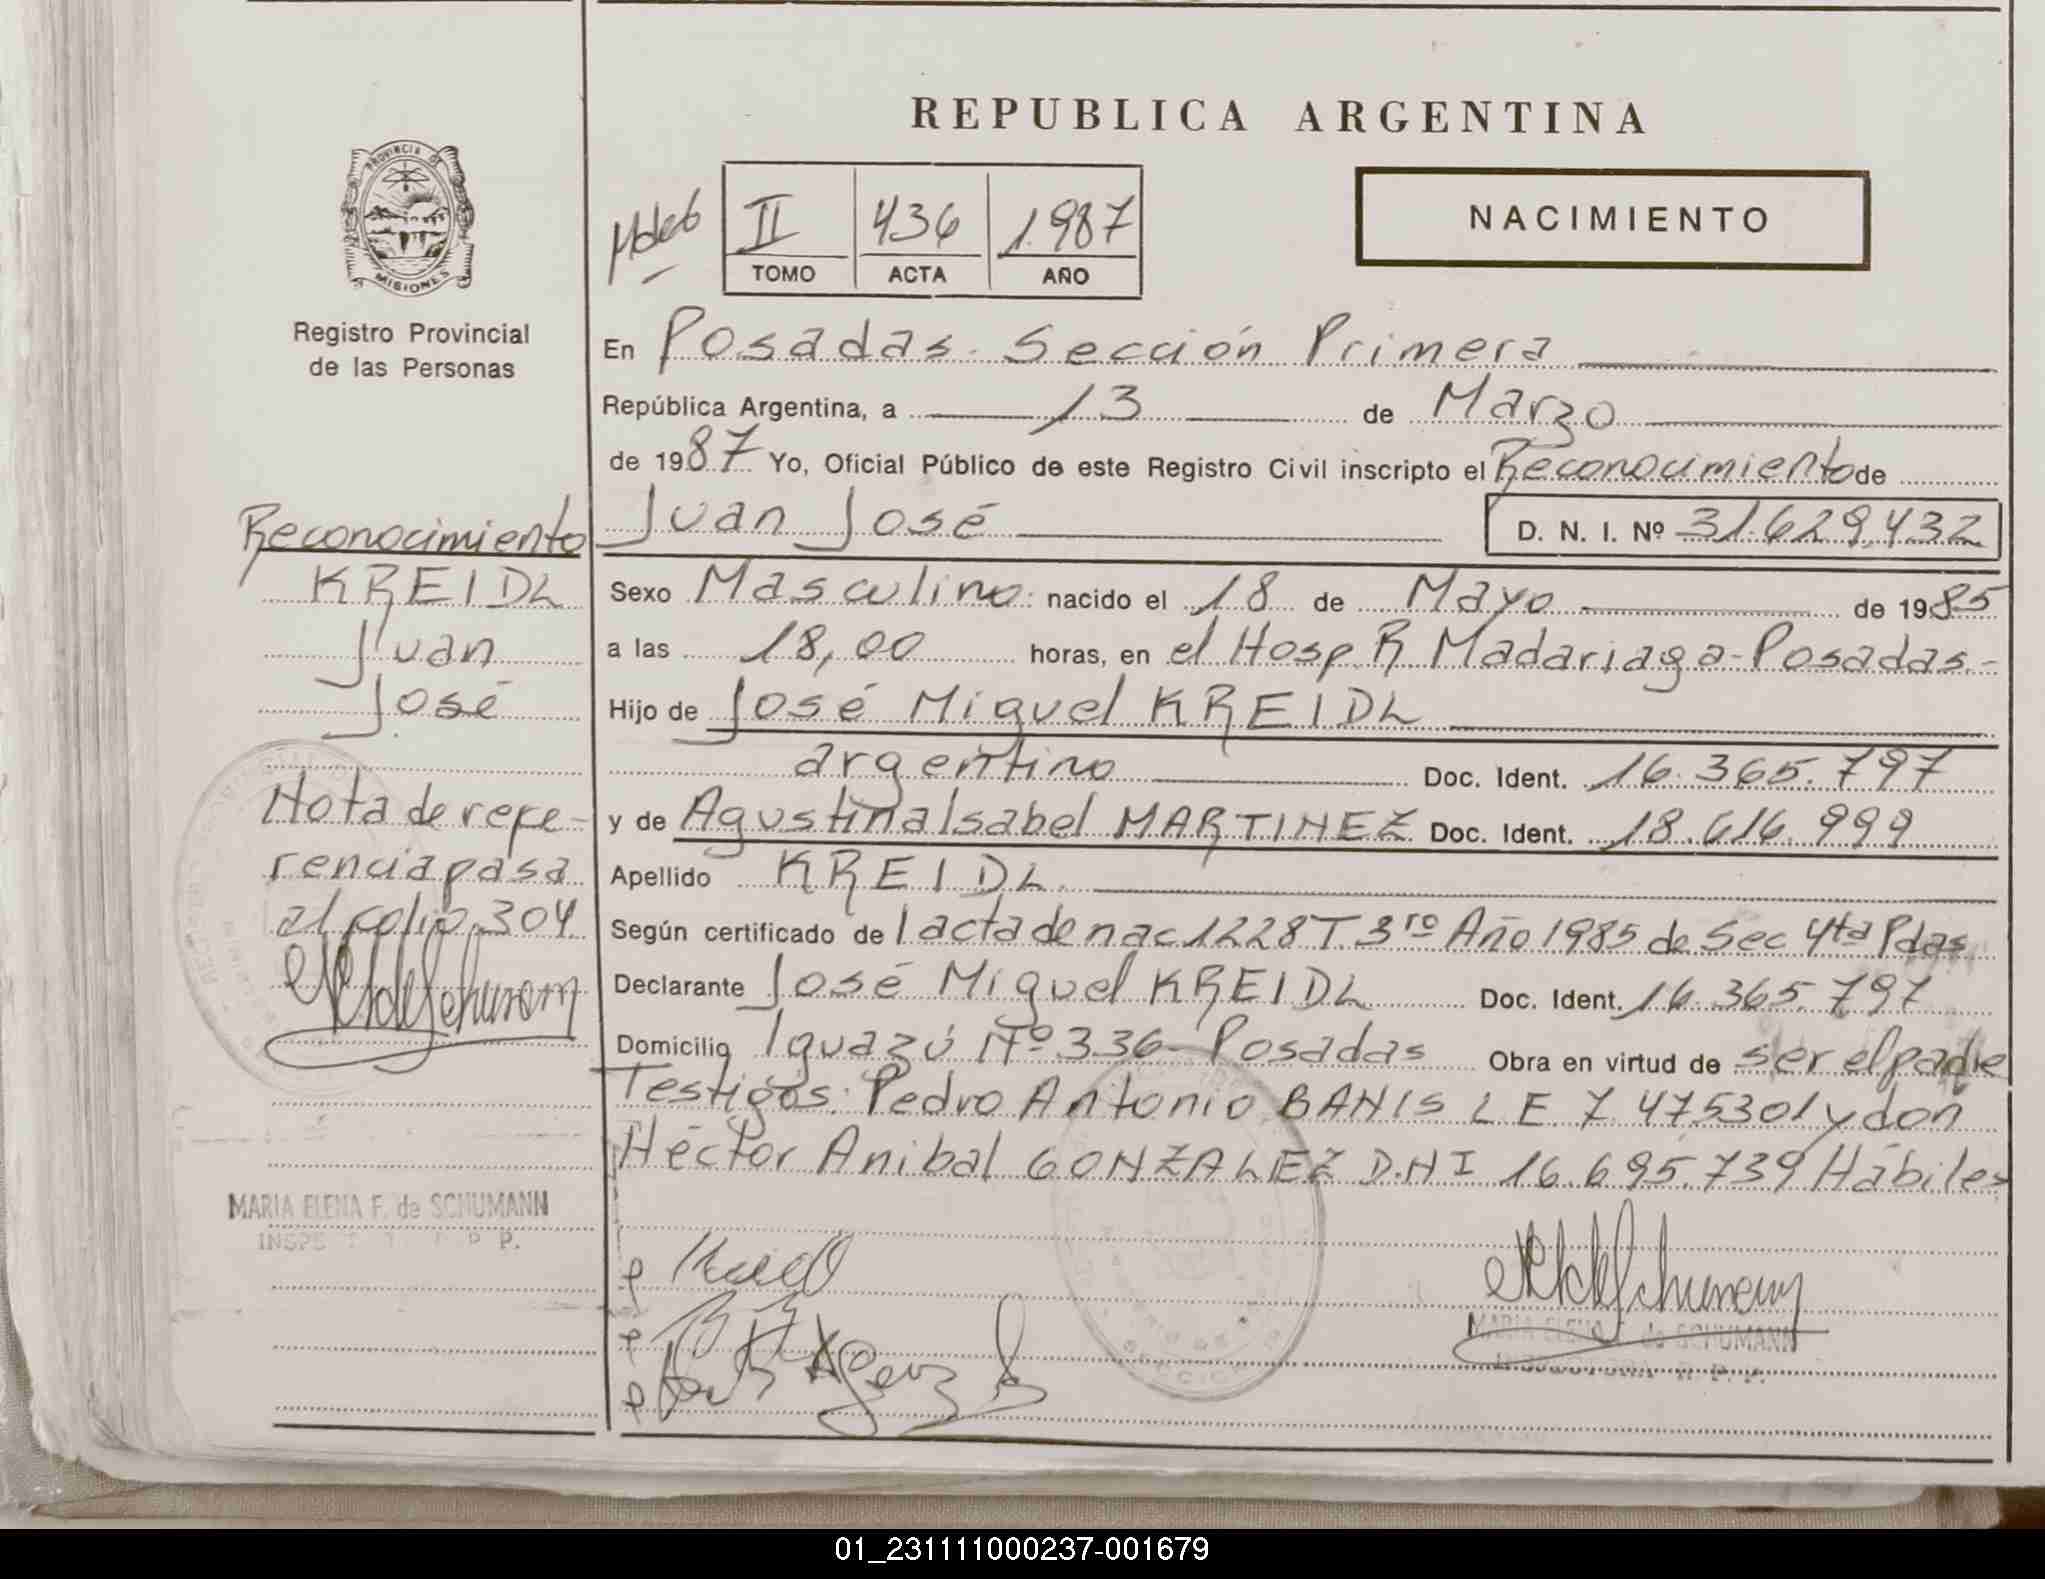 REPUBLICA ARGENTINA
PROVINCIA DE
MISIONES
Registro Provincial
de las Personas
II 436 1.987
TOMO ACTA AÑO
NACIMIENTO
En Posadas. Sección Primera
República Argentina, a 13 de Marzo
de 1987 Yo, Oficial Público de este Registro Civil inscripto el Reconocimiento de
Juan José D. N. I. Nº 31.629.432
Sexo Masculino. nacido el 18 de Mayo de 1985
a las 18,00 horas, en el Hosp. R Madariaga-Posadas.-
Hijo de José Miguel KREIDL
argentino Doc. Ident. 16.365.797
y de Agustina Isabel MARTINEZ Doc. Ident. 18.616.999
Apellido KREIDL
Según certificado de l acta de nac 1228 T. 3ro Año 1985 de Sec 4ta Pdas
Declarante José Miguel KREIDL Doc. Ident. 16.365.797
Domicilio Iguazú Nº 336- Posadas Obra en virtud de ser el padre
Testigos: Pedro Antonio BANIS L E 7.475301 y don
Héctor Anibal GONZALEZ D.N I 16.695.739 Hábiles
Reconocimiento
KREIDL
Juan
José
Nota de refe-
rencia pasa
al folio 304
MARIA ELENA F. de SCHUMANN
MARIA ELENA F. de SCHUMANN
01_231111000237-001679